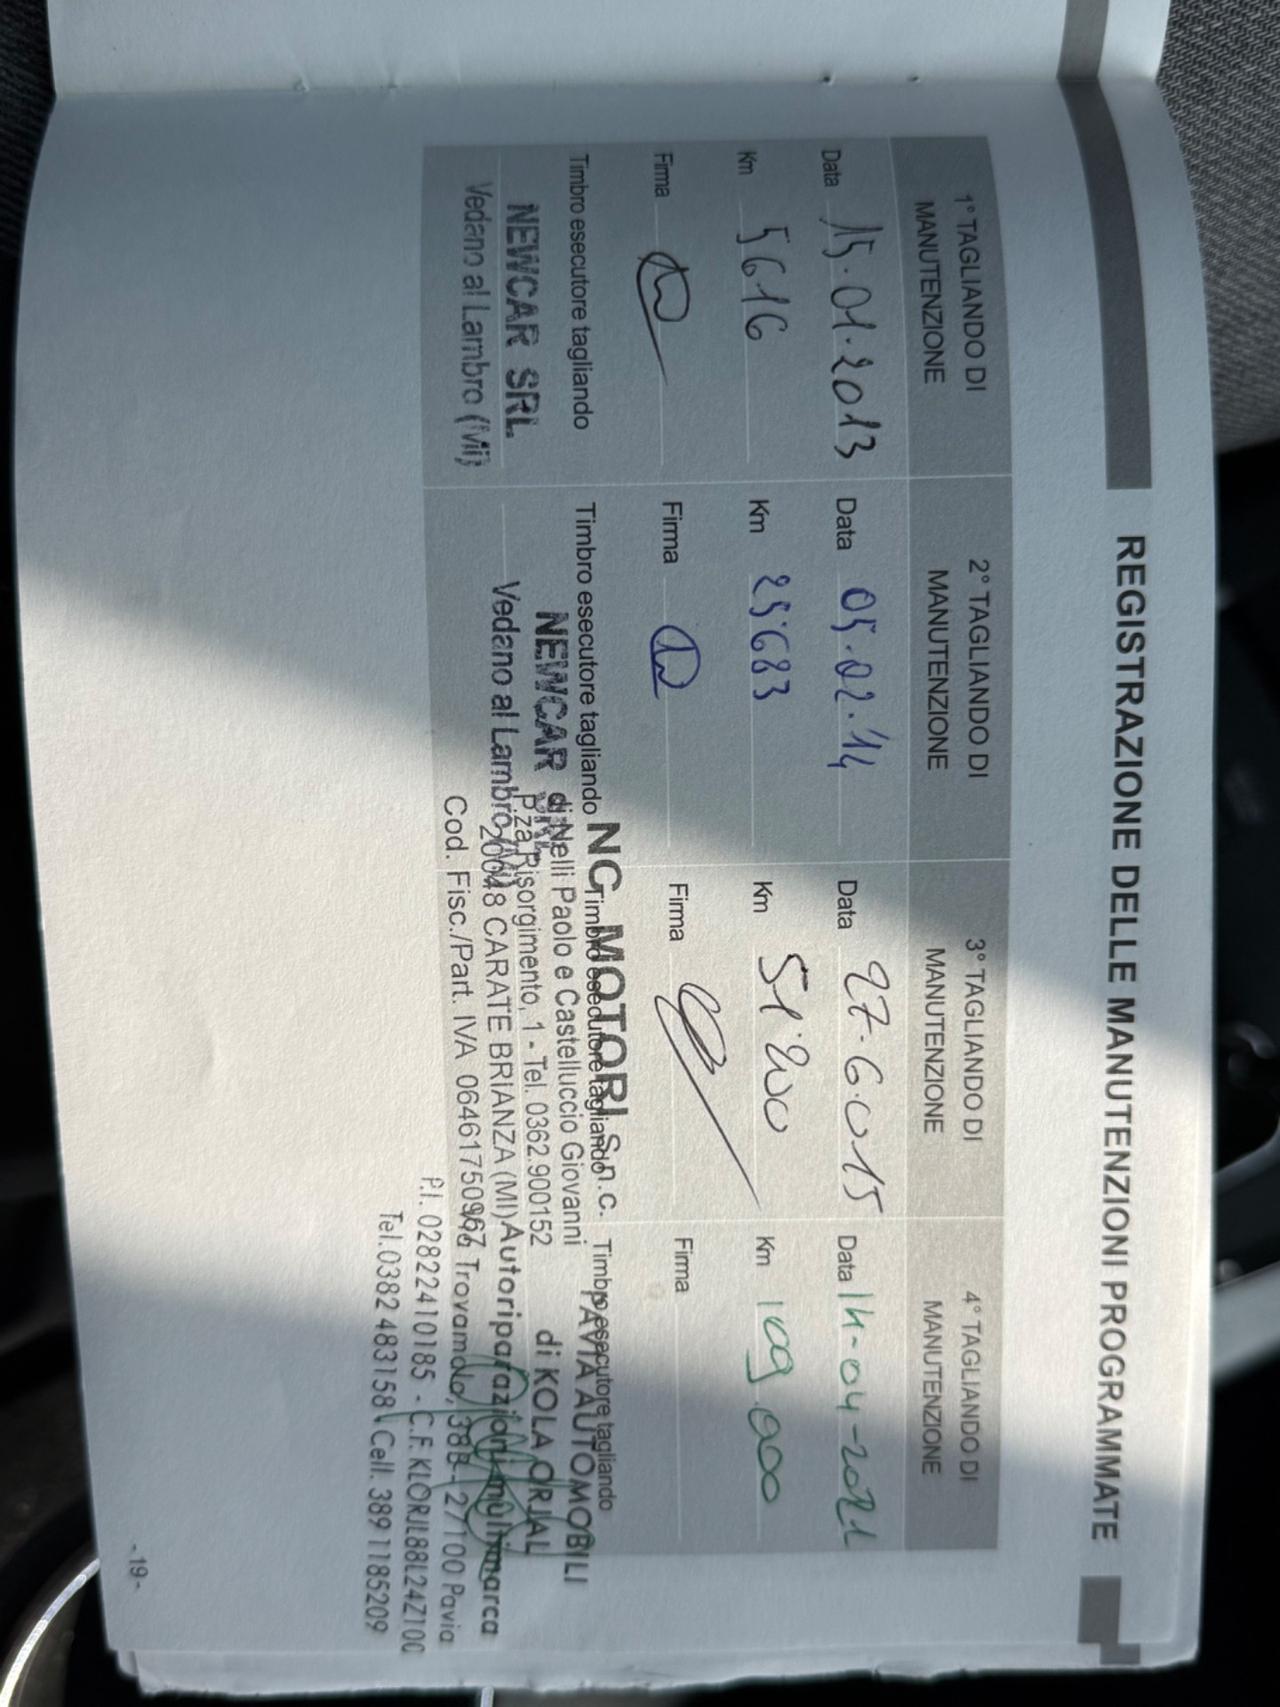 REGISTRAZIONE DELLE MANUTENZIONI PROGRAMMATE
1° TAGLIANDO DI
MANUTENZIONE
Data 15.01.2013
Km 5616
Firma
Timbro esecutore tagliando
NEWCAR SRL
Vedano al Lambro (MI)
2° TAGLIANDO DI
MANUTENZIONE
Data 05.02.14
Km 25683
Firma
Timbro esecutore tagliando
NEWCAR SRL
Vedano al Lambro (MI)
3° TAGLIANDO DI
MANUTENZIONE
Data 27-6-015
Km 51200
Firma
Timbro esecutore tagliando
NC MOTORI S.n.c.
di Nelli Paolo e Castelluccio Giovanni
P.za Risorgimento, 1 - Tel. 0362.900152
20048 CARATE BRIANZA (MI)
Cod. Fisc./Part. IVA
4° TAGLIANDO DI
MANUTENZIONE
Data 14-04-2021
Km 109.000
Firma
Timbro esecutore tagliando
PAVIA AUTOMOBILI
di KOLA ORJAL
Autoriparazioni multimarca
Trovamala, 38B - 27100 Pavia
P.I. 02822410185 - C.F. KLORJL88L24Z100
Tel.0382 483158 Cell. 389 1185209
- 19-